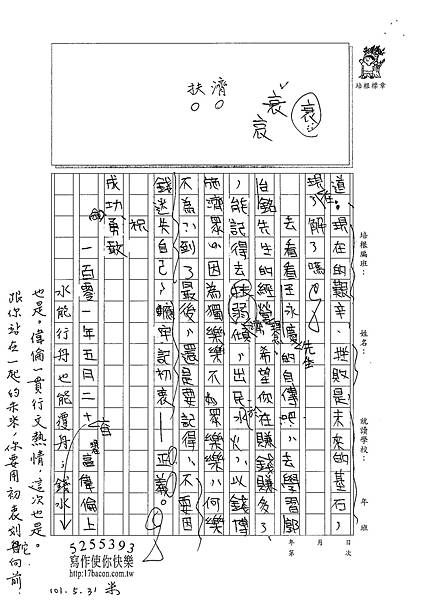 培根標章
扶濟
衰
衰
衰
培根編班:
姓名:
就讀學校:
年 班
道,現在的艱辛、挫敗是未來的基石,
現在了解了嗎?
去看看王永慶先生的自傳吧,去學習郭
台銘先生的經營理念,希望你在賺錢賺多了
,能記得去扶弱濟傾,出民於水火,以錢博
施濟眾,因為獨樂樂不如眾樂樂,何樂
不為?到了最後,還是要記得,不要因
錢迷失自己,牢記初衷——正義。
祝
成功勇敢
一百零一年五月二十
偉倫上
水能行丹也能覆丹;錢水
也是。偉倫一貫行文熱情,這次也是。
跟你站在一起的未來,你要用初衷刻
向前
年 月 日
第 次
5255393
寫作使你快樂
http://17bacon.com.tw
101.5.31